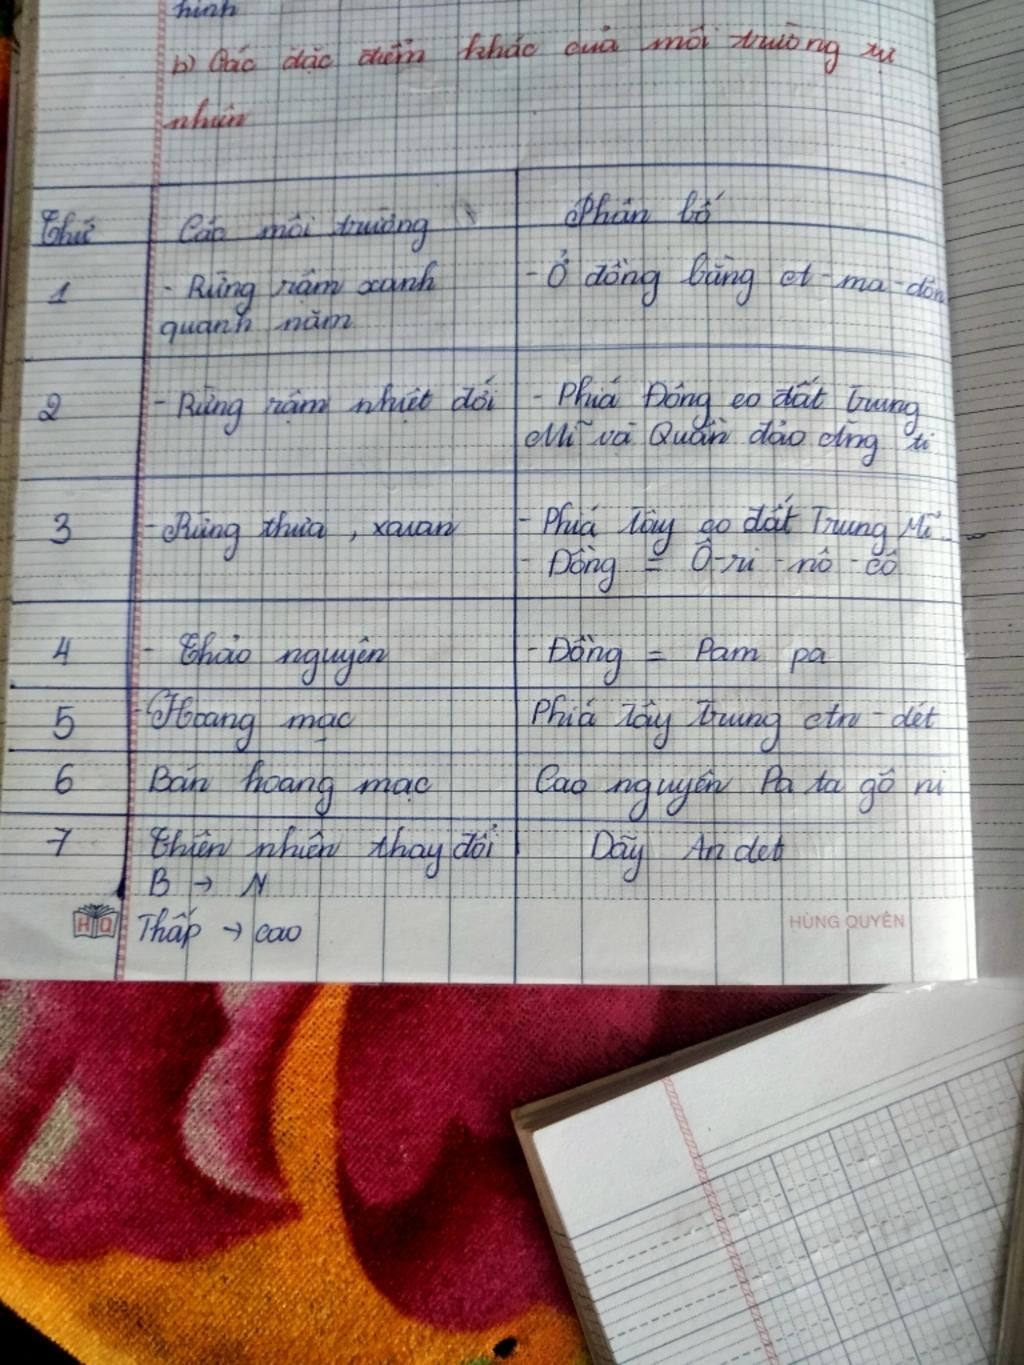 hình
b) Các đặc điểm khác của môi trường tự
nhiên
Thứ Các môi trường Phân bố
1 - Rừng rậm xanh - Ở đồng bằng A-ma-dôn
quanh năm
2 - Rừng rậm nhiệt đới - Phiá Đông eo đất Trung
Mĩ và Quần đảo Ăng ti
3 - Rừng thưa, xavan - Phiá Tây eo đất Trung Mĩ
- Đồng = Ô-ri-nô-cô
4 - Thảo nguyên - Đồng = Pam pa
5 - Hoang mạc Phiá Tây Trung An-dét
6 Bán hoang mạc Cao nguyên Pa ta gô ni
7 Thiên nhiên thay đổi Dãy An det
B → N
Thấp → cao
HQ HÙNG QUYÊN